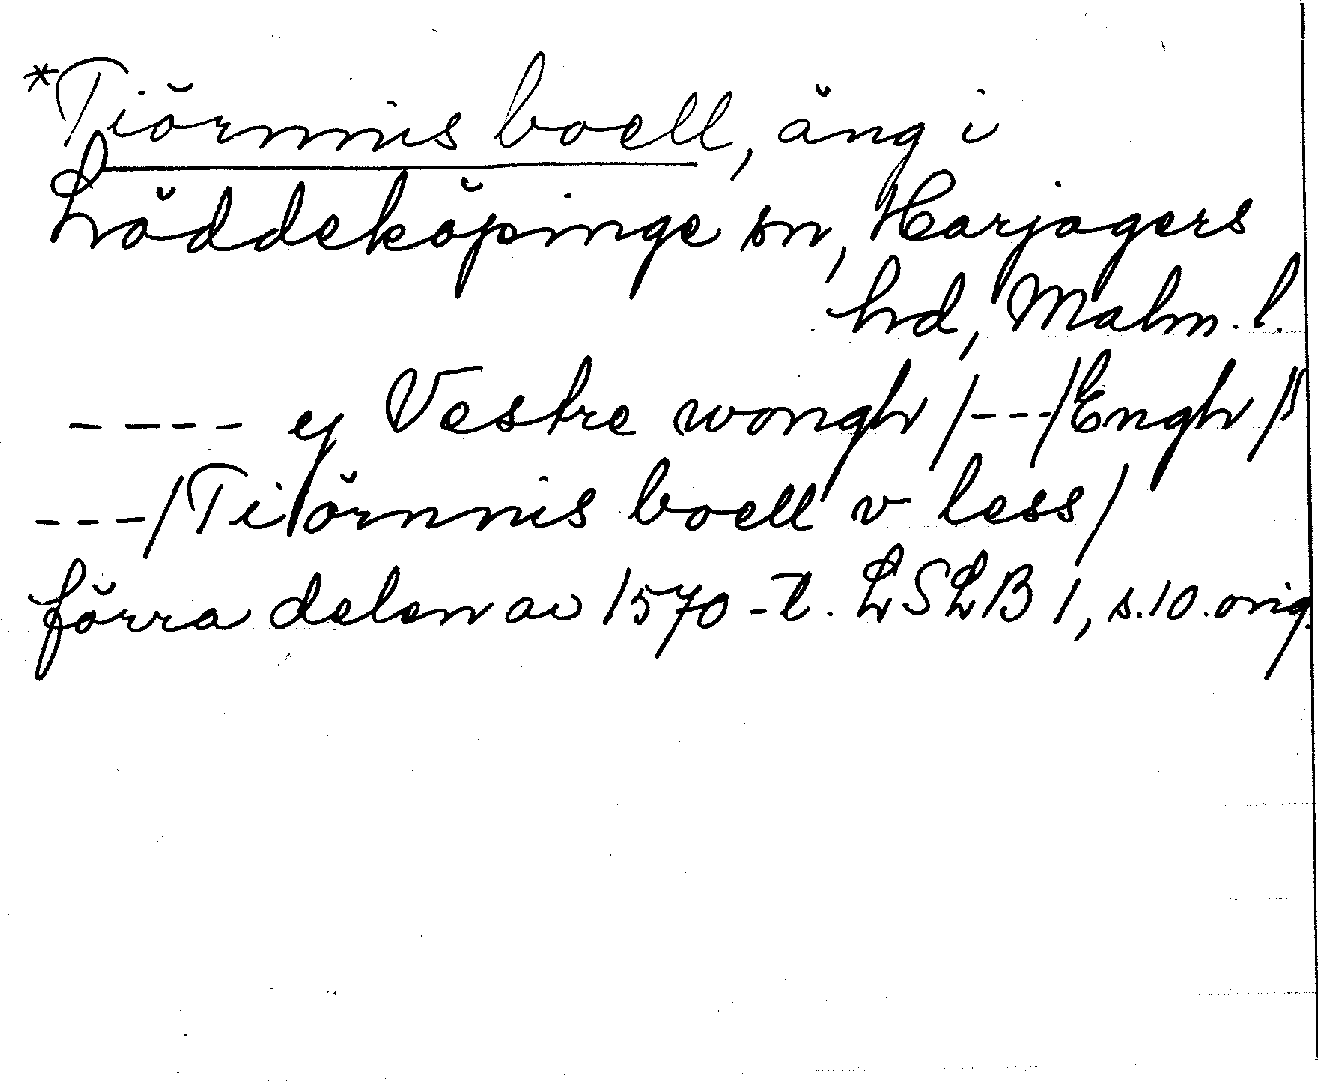 *Tiörnnis boell, äng i
Löddeköpinge sn, Harjagers
hd, Malm. l.
---- ej Vestre wongh /---/ Engh //
---/ Tiörnnis boell v less/
förra delen av 1570-t. LSLB 1, s.10. orig.